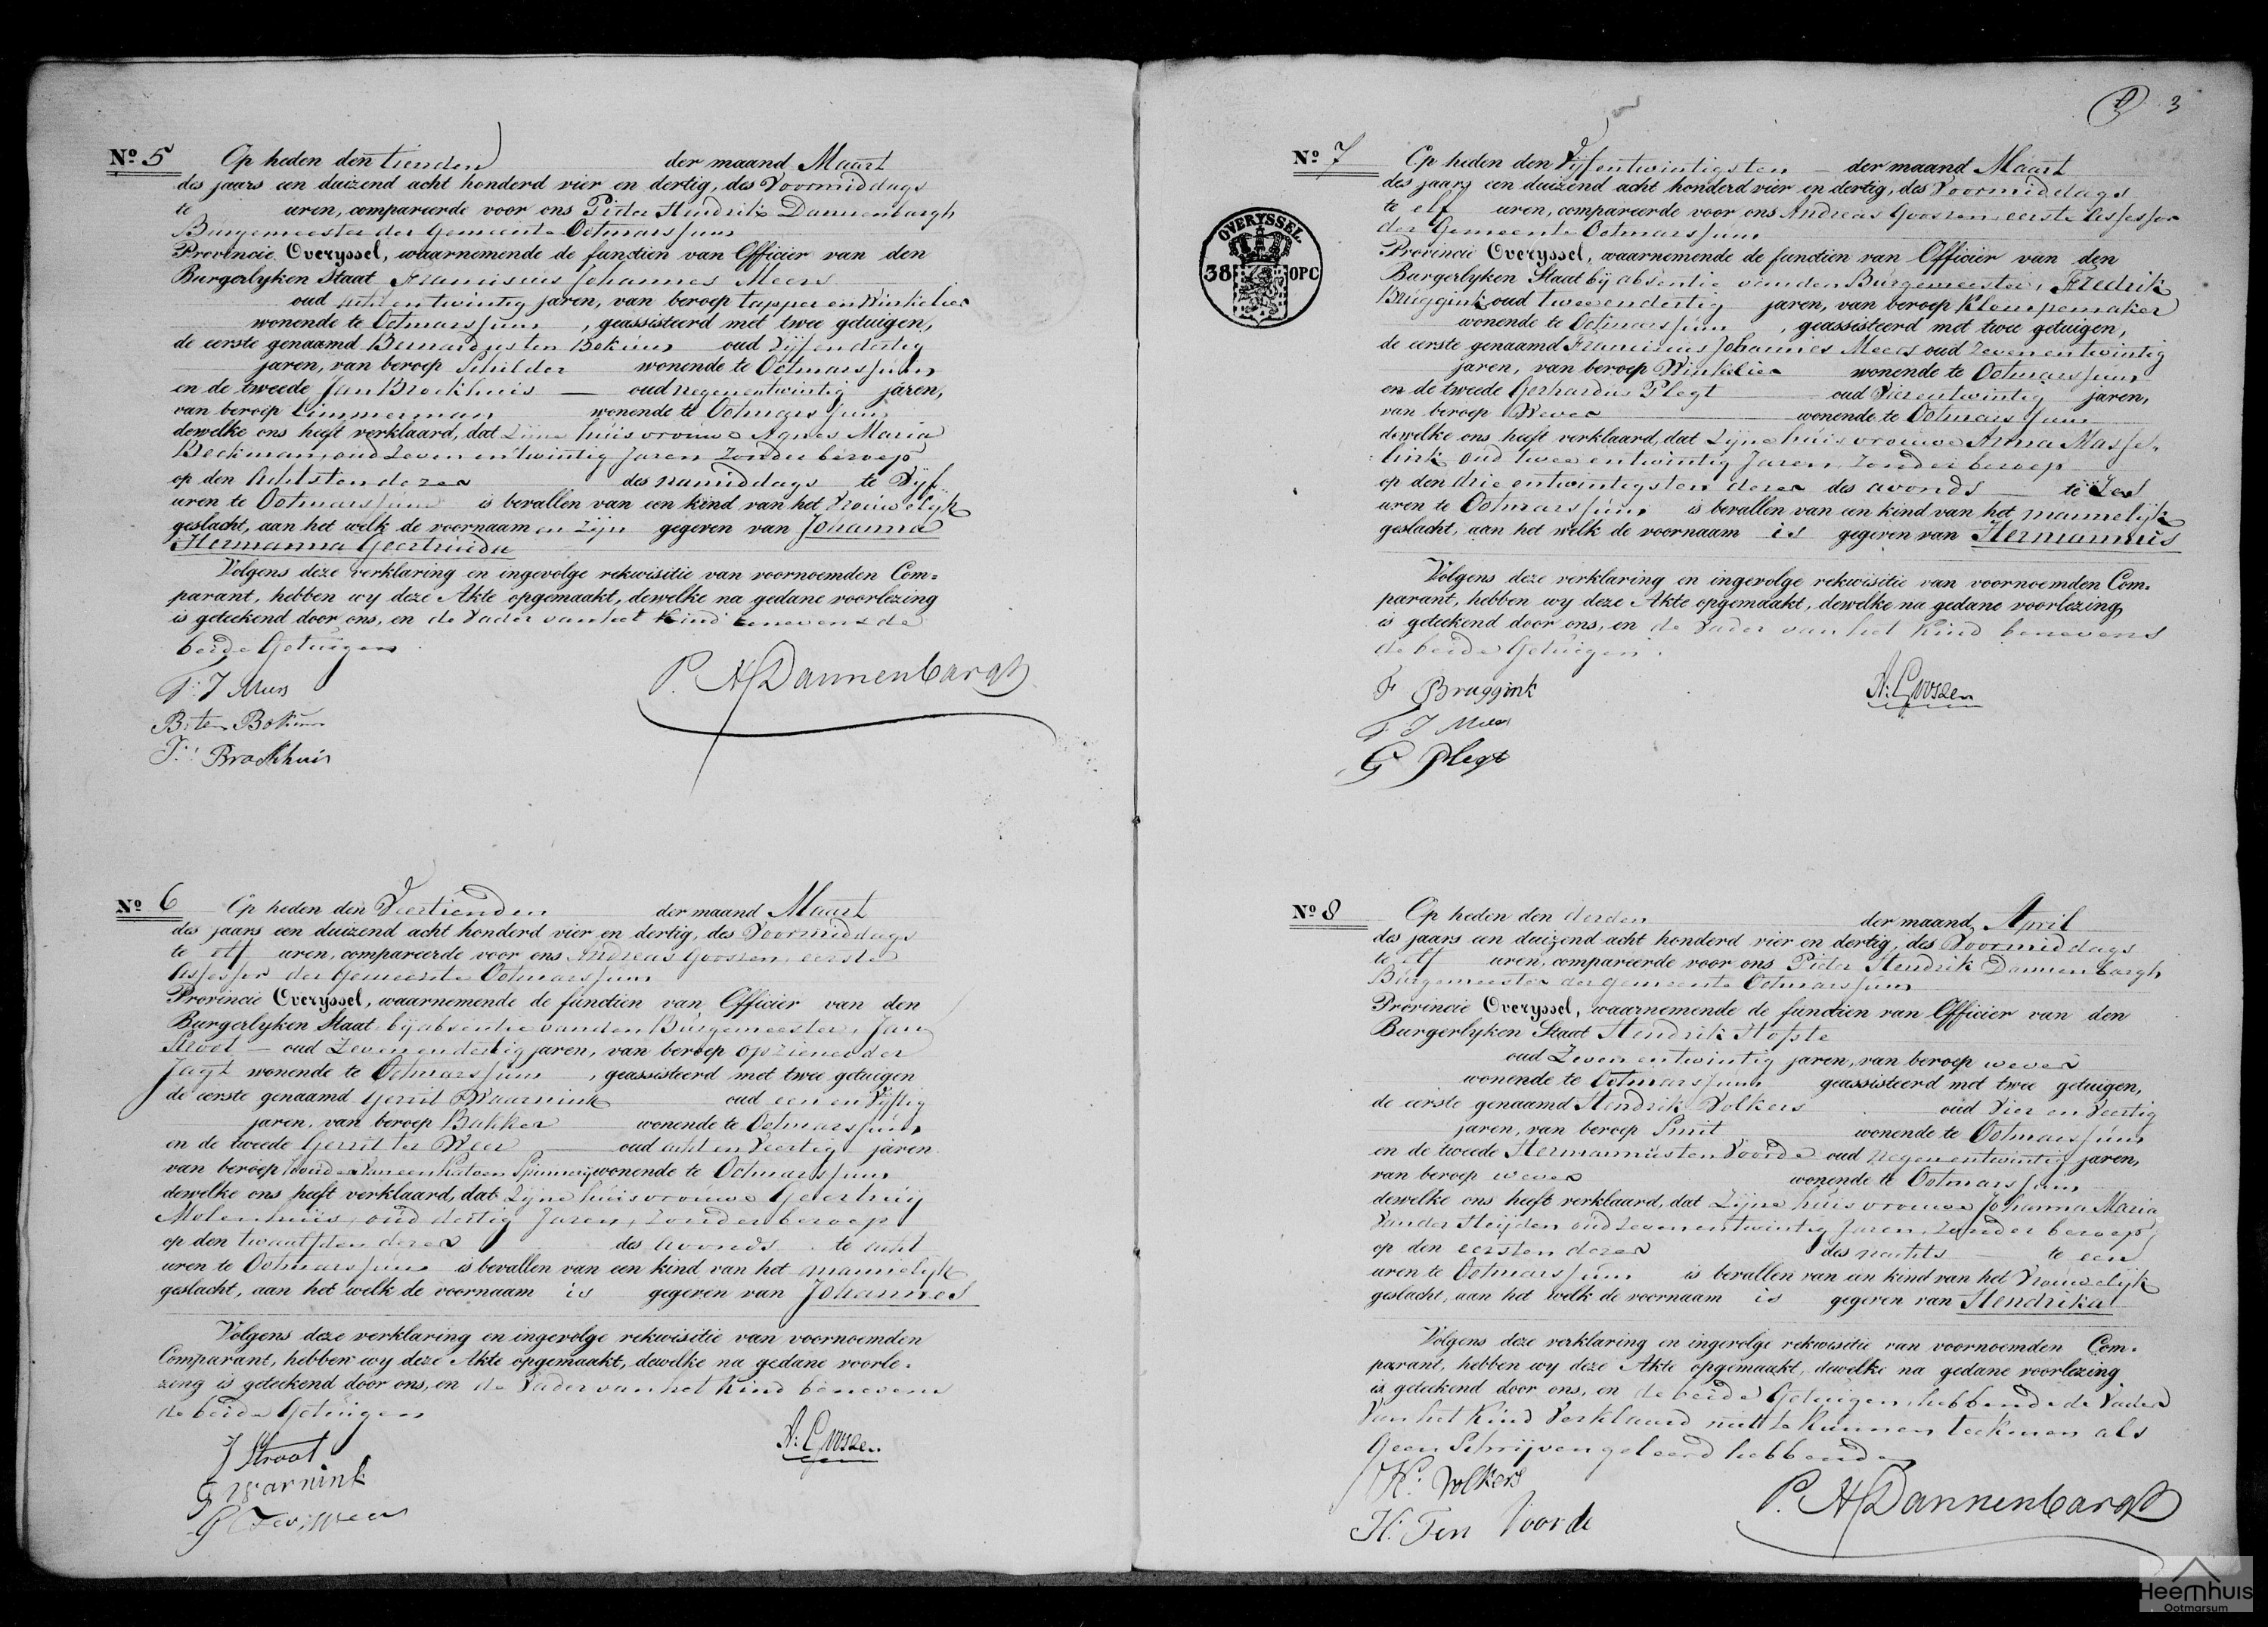 № 5 Op heden den tienden der maand Maart
des jaars een duizend acht honderd vier en dertig, des Voormiddags
te uren, compareerde voor ons Pieter Hendrik Dannenbargh
Burgemeester der Gemeente Ootmarssum
Provincie Overyssel, waarnemende de functien van Officier van den
Burgerlyken Staat Franciscus Johannes Meers
oud acht en twintig jaren, van beroep tapper en Winkelier
wonende te Ootmarssum, geassisteerd met twee getuigen,
de eerste genaamd Bernardus ten Bokum oud Vijf en dertig
jaren, van beroep Schilder wonende te Ootmarssum
en de tweede Jan Brockhuis oud negenentwintig jaren,
van beroep timmerman wonende te Ootmarssum
dewelke ons heeft verklaard, dat Zijne huisvrouwe Agnes Maria
Beckman, oud Zeven en twintig Jaren Zonder beroep
op den Achtsten dezer des namiddags te Vijf
uren te Ootmarssum is bevallen van een kind van het Vrouwelijk
geslacht, aan het welk de voornaam en Zijn gegeven van Johanna
Hermanna Geertruida
Volgens deze verklaring en ingevolge rekwisitie van voornoemden Com=
parant, hebben wy deze Akte opgemaakt, dewelke na gedane voorlezing
is geteekend door ons, en de Vader van het Kind benevens de
beide Getuigen
F: J Meers
B: ten Bokum
J: Brockhuis
P. H Dannenbargh
№ 6 Op heden den Veertienden der maand Maart
des jaars een duizend acht honderd vier en dertig, des Voormiddags
te elf uren, compareerde voor ons Andreas Goossen, eerste
Assessor der Gemeente Ootmarssum
Provincie Overyssel, waarnemende de functien van Officier van den
Burgerlyken Staat bij absentie van den Burgemeester, Jan
Stroot oud Zeven en dertig jaren, van beroep opziener der
Jagt wonende te Ootmarssum, geassisteerd met twee getuigen
de eerste genaamd Gerrit Waarnink oud een en Vijftig
jaren, van beroep Bakker wonende te Ootmarssum
en de tweede Gerrit ter Weer oud acht en Veertig jaren
van beroep van een Katoen Spinnerij wonende te Ootmarssum
dewelke ons heeft verklaard, dat Zijne huisvrouwe Geertruij
Molenhuis, oud dertig Jaren, Zonder beroep
op den twaalfden dezer des avonds te acht
uren te Ootmarssum is bevallen van een kind van het mannelijk
geslacht, aan het welk de voornaam is gegeven van Johannes
Volgens deze verklaring en ingevolge rekwisitie van voornoemden
Comparant, hebben wy deze Akte opgemaakt, dewelke na gedane voorle=
zing is geteekend door ons, en de Vader van het Kind benevens
de beide Getuigen
J Stroot
G Warnink
G Ter Weer
A: Goossen
3
№ 7 Op heden den Vijfentwintigsten der maand Maart
des jaars een duizend acht honderd vier en dertig, des Voormiddags
te elf uren, compareerde voor ons Andreas Goossen eerste Assessor
der Gemeente Ootmarssum
OVERYSSEL
38 OPC
Provincie Overyssel, waarnemende de functien van Officier van den
Burgerlyken Staat bij absentie van den Burgemeester, Fredrik
Bruggink oud tweeendertig jaren, van beroep Klompemaker
wonende te Ootmarssum, geassisteerd met twee getuigen,
de eerste genaamd Franciscus Johannes Meers oud Zevenentwintig
jaren, van beroep Winkelier wonende te Ootmarssum
en de tweede Gerhardus Plegt oud Vierentwintig jaren,
van beroep Wever wonende te Ootmarssum
dewelke ons heeft verklaard, dat Zijne huisvrouwe Anna Masse=
link oud twee entwintig Jaren, Zonder beroep
op den drie entwintigsten dezer des avonds te Zes
uren te Ootmarssum is bevallen van een kind van het mannelijk
geslacht, aan het welk de voornaam is gegeven van Hermannus
Volgens deze verklaring en ingevolge rekwisitie van voornoemden Com=
parant, hebben wy deze Akte opgemaakt, dewelke na gedane voorlezing
is geteekend door ons, en de Vader van het Kind benevens
de beide Getuigen.
F Bruggink
F J Meers
G Plegt
A: Goossen
№ 8 Op heden den derden der maand April
des jaars een duizend acht honderd vier en dertig, des Voormiddags
te elf uren, compareerde voor ons Pieter Hendrik Dannenbargh
Burgemeester der Gemeente Ootmarssum
Provincie Overyssel, waarnemende de functien van Officier van den
Burgerlyken Staat Hendrik Hofste
oud Zeven entwintig jaren, van beroep wever
wonende te Ootmarssum geassisteerd met twee getuigen,
de eerste genaamd Hendrik Volkers oud Vier en Veertig
jaren, van beroep Smit wonende te Ootmarssum
en de tweede Hermannus ten Voorde oud negenentwintig jaren,
van beroep wever wonende te Ootmarssum
dewelke ons heeft verklaard, dat Zijne huisvrouwe Johanna Maria
Van der Heijden oud Zevenentwintig Jaren, Zonder beroep,
op den eersten dezer des nachts te een
uren te Ootmarssum is bevallen van een kind van het Vrouwelijk
geslacht, aan het welk de voornaam is gegeven van Hendrika
Volgens deze verklaring en ingevolge rekwisitie van voornoemden Com=
parant, hebben wy deze Akte opgemaakt, dewelke na gedane voorlezing
is geteekend door ons, en de beide Getuigen, hebbende de Vader
Van het Kind Verklaard niet te Kunnen teekenen als
Geen Schrijven geleerd hebbende
H: Volkers
H: Ten Voorde
P. H Dannenbargh
Heemhuis
Ootmarsum